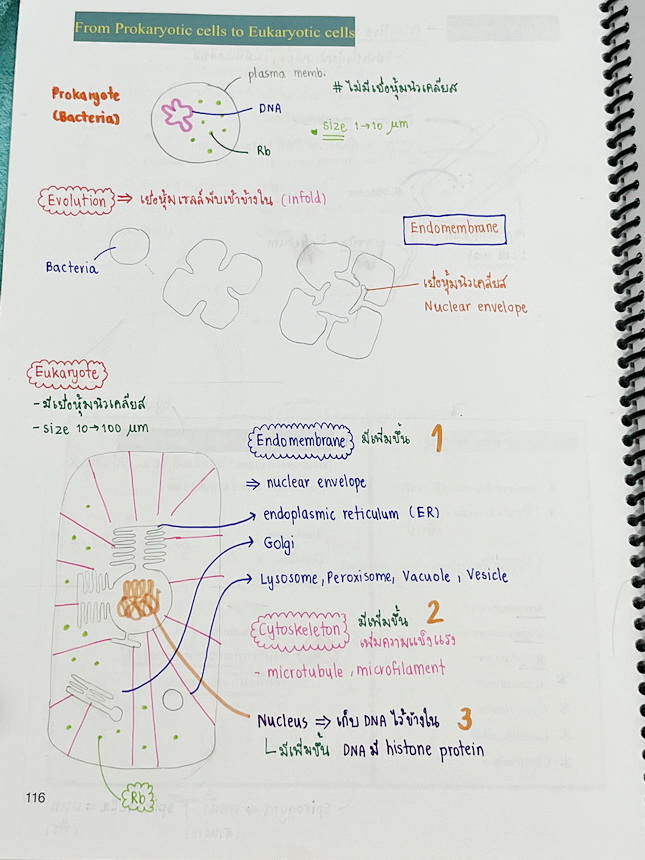 From Prokaryotic cells to Eukaryotic cells
plasma memb.
Prokaryote
(Bacteria)
DNA
Rb
# ไม่มีเยื่อหุ้มนิวเคลียส
size 1→10 μm
Evolution ⇒ เยื่อหุ้มเซลล์พับเข้าข้างใน (infold)
Endomembrane
Bacteria
เยื่อหุ้มนิวเคลียส
Nuclear envelope
Eukaryote
- มีเยื่อหุ้มนิวเคลียส
- size 10→100 μm
Endomembrane มีเพิ่มขึ้น 1
⇒ nuclear envelope
endoplasmic reticulum (ER)
Golgi
Lysosome, Peroxisome, Vacuole, Vesicle
Cytoskeleton มีเพิ่มขึ้น 2
เพิ่มความแข็งแรง
- microtubule, microfilament
Nucleus ⇒ เก็บ DNA ไว้ข้างใน 3
มีเพิ่มขึ้น DNA มี histone protein
Rb
116